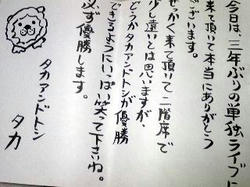 今日は、三年ぶりの単独ライブに
来て頂いて本当にありがとう
ございます。
せっかく来て頂いて二階席で
少し遠いとは思いますが、
どうかタカアンドトシが優勝
できますようにいっぱい笑って下さいね。
必ず優勝します。
タカアンドトシ
タカ